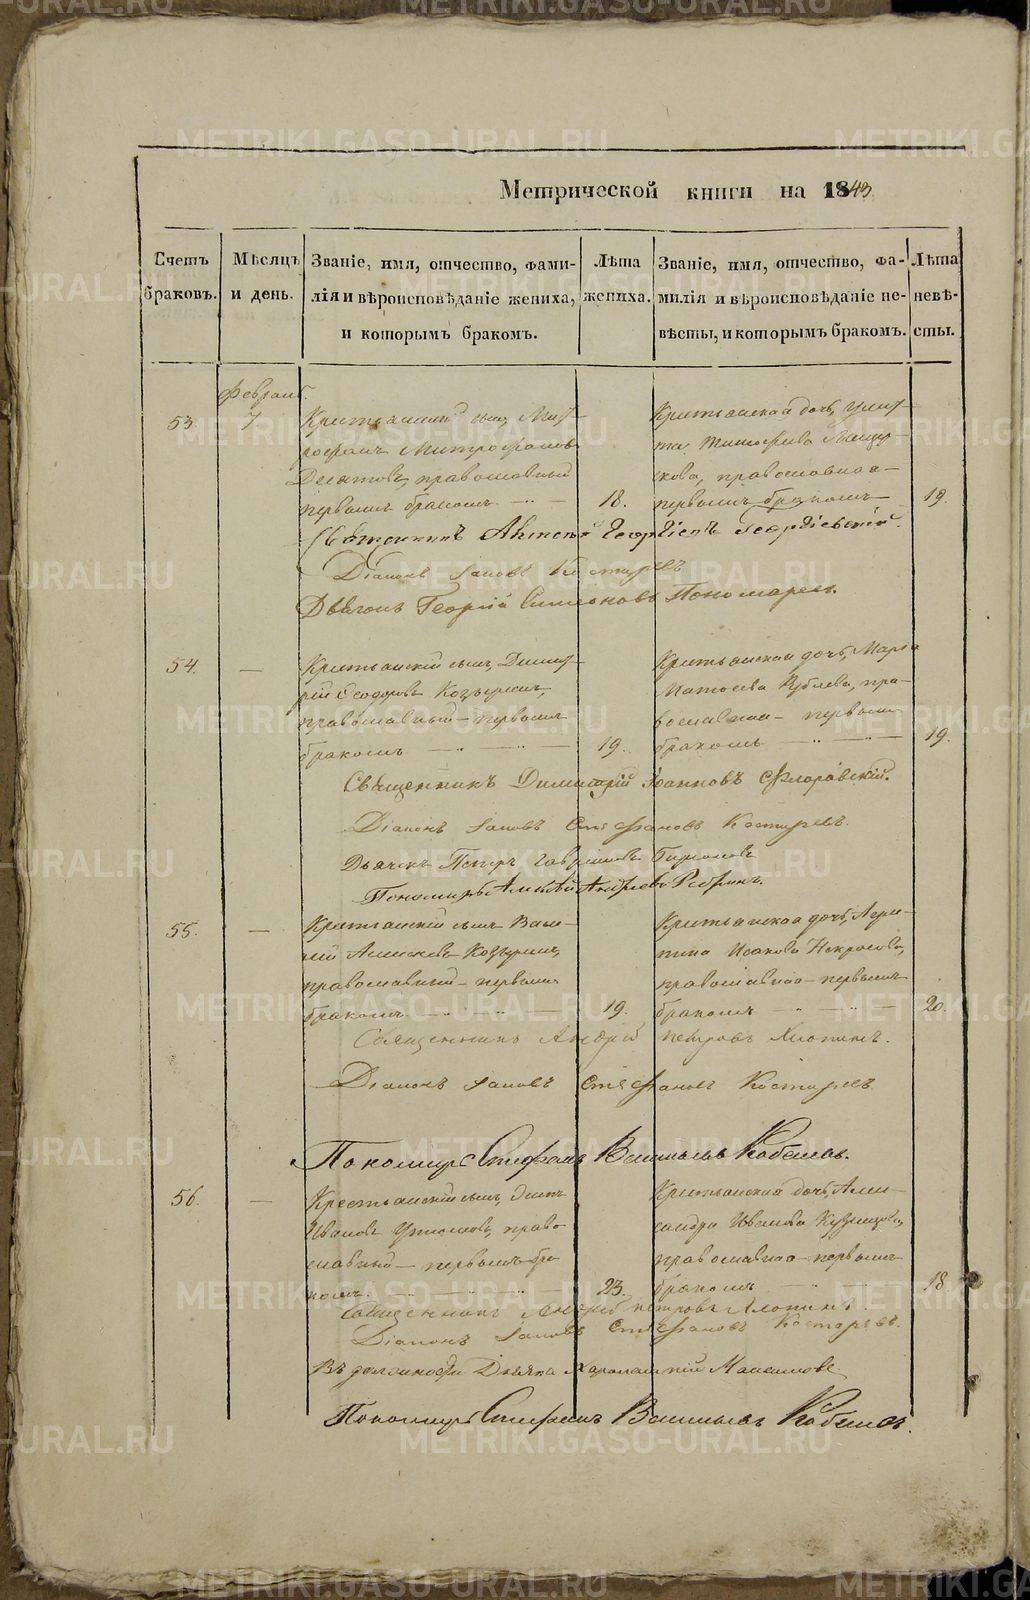 Метрической книги на 1843
Счетъ браковъ.
Мѣсяцъ и день.
Званіе, имя, отчество, фами-
лія и вѣроисповѣданіе жениха,
и которымъ бракомъ.
Лѣта
жениха.
Званіе, имя, отчество, фа-
милія и вѣроисповѣданіе не-
вѣсты, и которымъ бракомъ.
Лѣта
невѣ-
сты.
53.
7
Крестьянскій сынъ, Мит-
рофанъ Митрофановъ
православный
первымъ бракомъ
18.
Крестьянская дочь, Улит-
та Тимофеева
кова, православная
первымъ бракомъ
19.
Священникъ Алексѣй Георгіевъ Георгіевскій.
Діаконъ Іаковъ Костыревъ
Дьячекъ Георгій Симеоновъ Пономаревъ.
54.
Крестьянскій сынъ, Димит-
рій Ѳеодоровъ Козыринъ,
православный первымъ
бракомъ
19.
Крестьянская дочь, Марѳа
Матвеева Рублева, пра-
вославная первымъ
бракомъ
19.
Священникъ Димитрій Іоанновъ Флоровскій.
Діаконъ Іаковъ Стефановъ Костыревъ.
Дьячекъ Петръ Гавриловъ
Пономарь Алексѣй Андреевъ
55.
Крестьянскій сынъ Васи-
лій Алексеевъ Козыринъ,
православный первымъ
бракомъ
19.
Крестьянская дочь, Агри-
пина Исакова Некрасова,
православная первымъ
бракомъ
20.
Священникъ Андрей Петровъ Хлопинъ.
Діаконъ Іаковъ Стефановъ Костыревъ
Пономарь Стефанъ Васильевъ Кобелевъ.
56.
Крестьянскій сынъ,
Ивановъ право-
славный первымъ бра-
комъ.
23.
Крестьянская дочь, Алек-
сандра Иванова Кузнецова,
православная первымъ
бракомъ
18
Священникъ Андрей Петровъ Хлопинъ.
Діаконъ Іаковъ Стефановъ Костыревъ.
Въ должности Дьячка Харлампій Максимовъ
Пономарь Стефанъ Васильевъ Кобелевъ.
METRIKI.GASO-URAL.RU